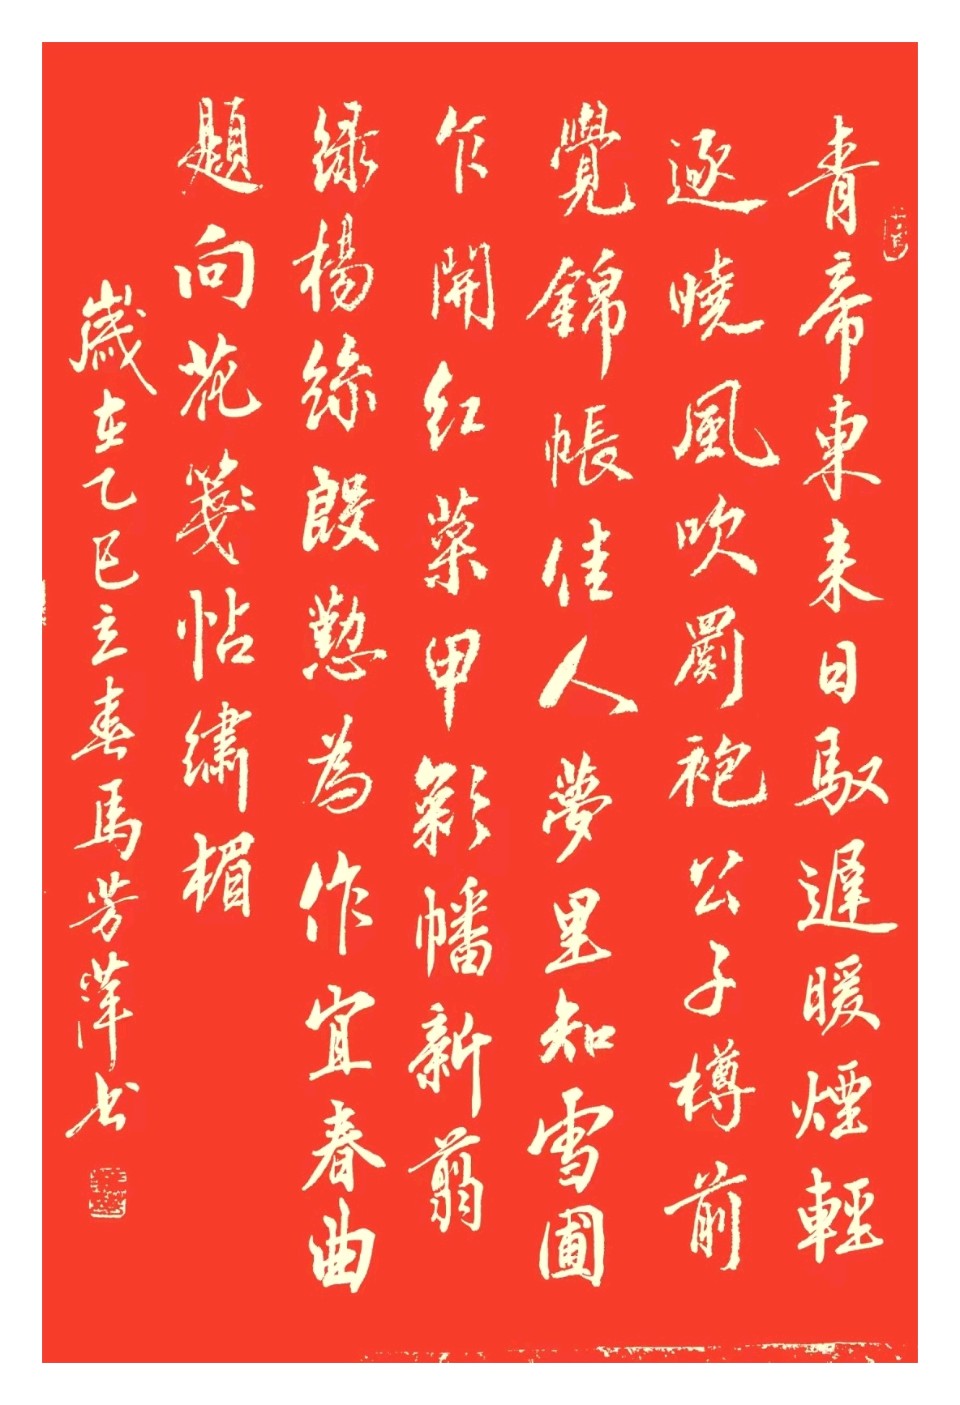 青帝東来日馭遲暖煙輕
逐曉風吹罽袍公子樽前
覺錦帳佳人夢里知雪圃
乍開紅菜甲彩幡新翦
绿楊絲殷懃為作宜春曲
題向花箋帖繡楣
歲在乙巳立春馬芳萍书